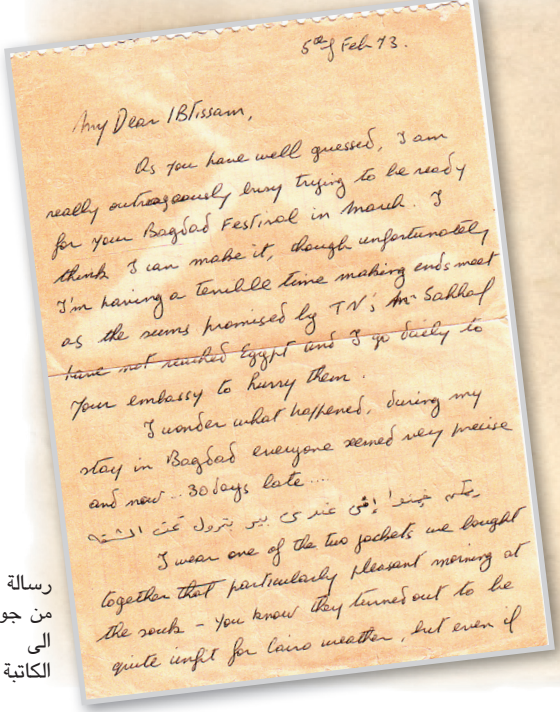 5th of Feb 73.
My Dear IBtissam,
As you have well guessed, I am
really outrageously busy trying to be ready
for your Bagdad Festival in March. I
think I can make it, though unfortunately
I'm having a terrible time making ends meet
as the sums promised by TV's Mr Sahhaf
have not reached Egypt and I go daily to
your embassy to hurry them.
I wonder what happened, during my
stay in Bagdad everyone seemed very precise
and now.. 30 days late....
عندى بير بترول تحت الشقه
I wear one of the two jackets we bought
together that particularly pleasant morning at
the souk - you know they turned out to be
quite unfit for Cairo weather, but even if
رسالة
من جو
الى
الكاتبة